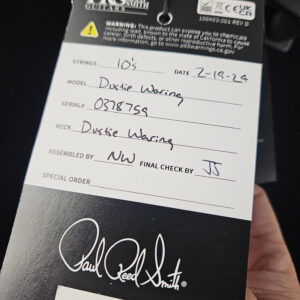 GUITARS
100403:001 REV D
WARNING: This product can expose you to chemicals
including lead, known to the state of California to cause
cancer, birth defects, or other reproductive harm. For
more information, go to www.p65warnings.ca.gov
STRINGS 10's DATE 2-19-24
MODEL Dustie Waring
SERIAL# 0378759
NECK Dustie Waring
ASSEMBLED BY NW FINAL CHECK BY JJ
SPECIAL ORDER
Paul Reed Smith®